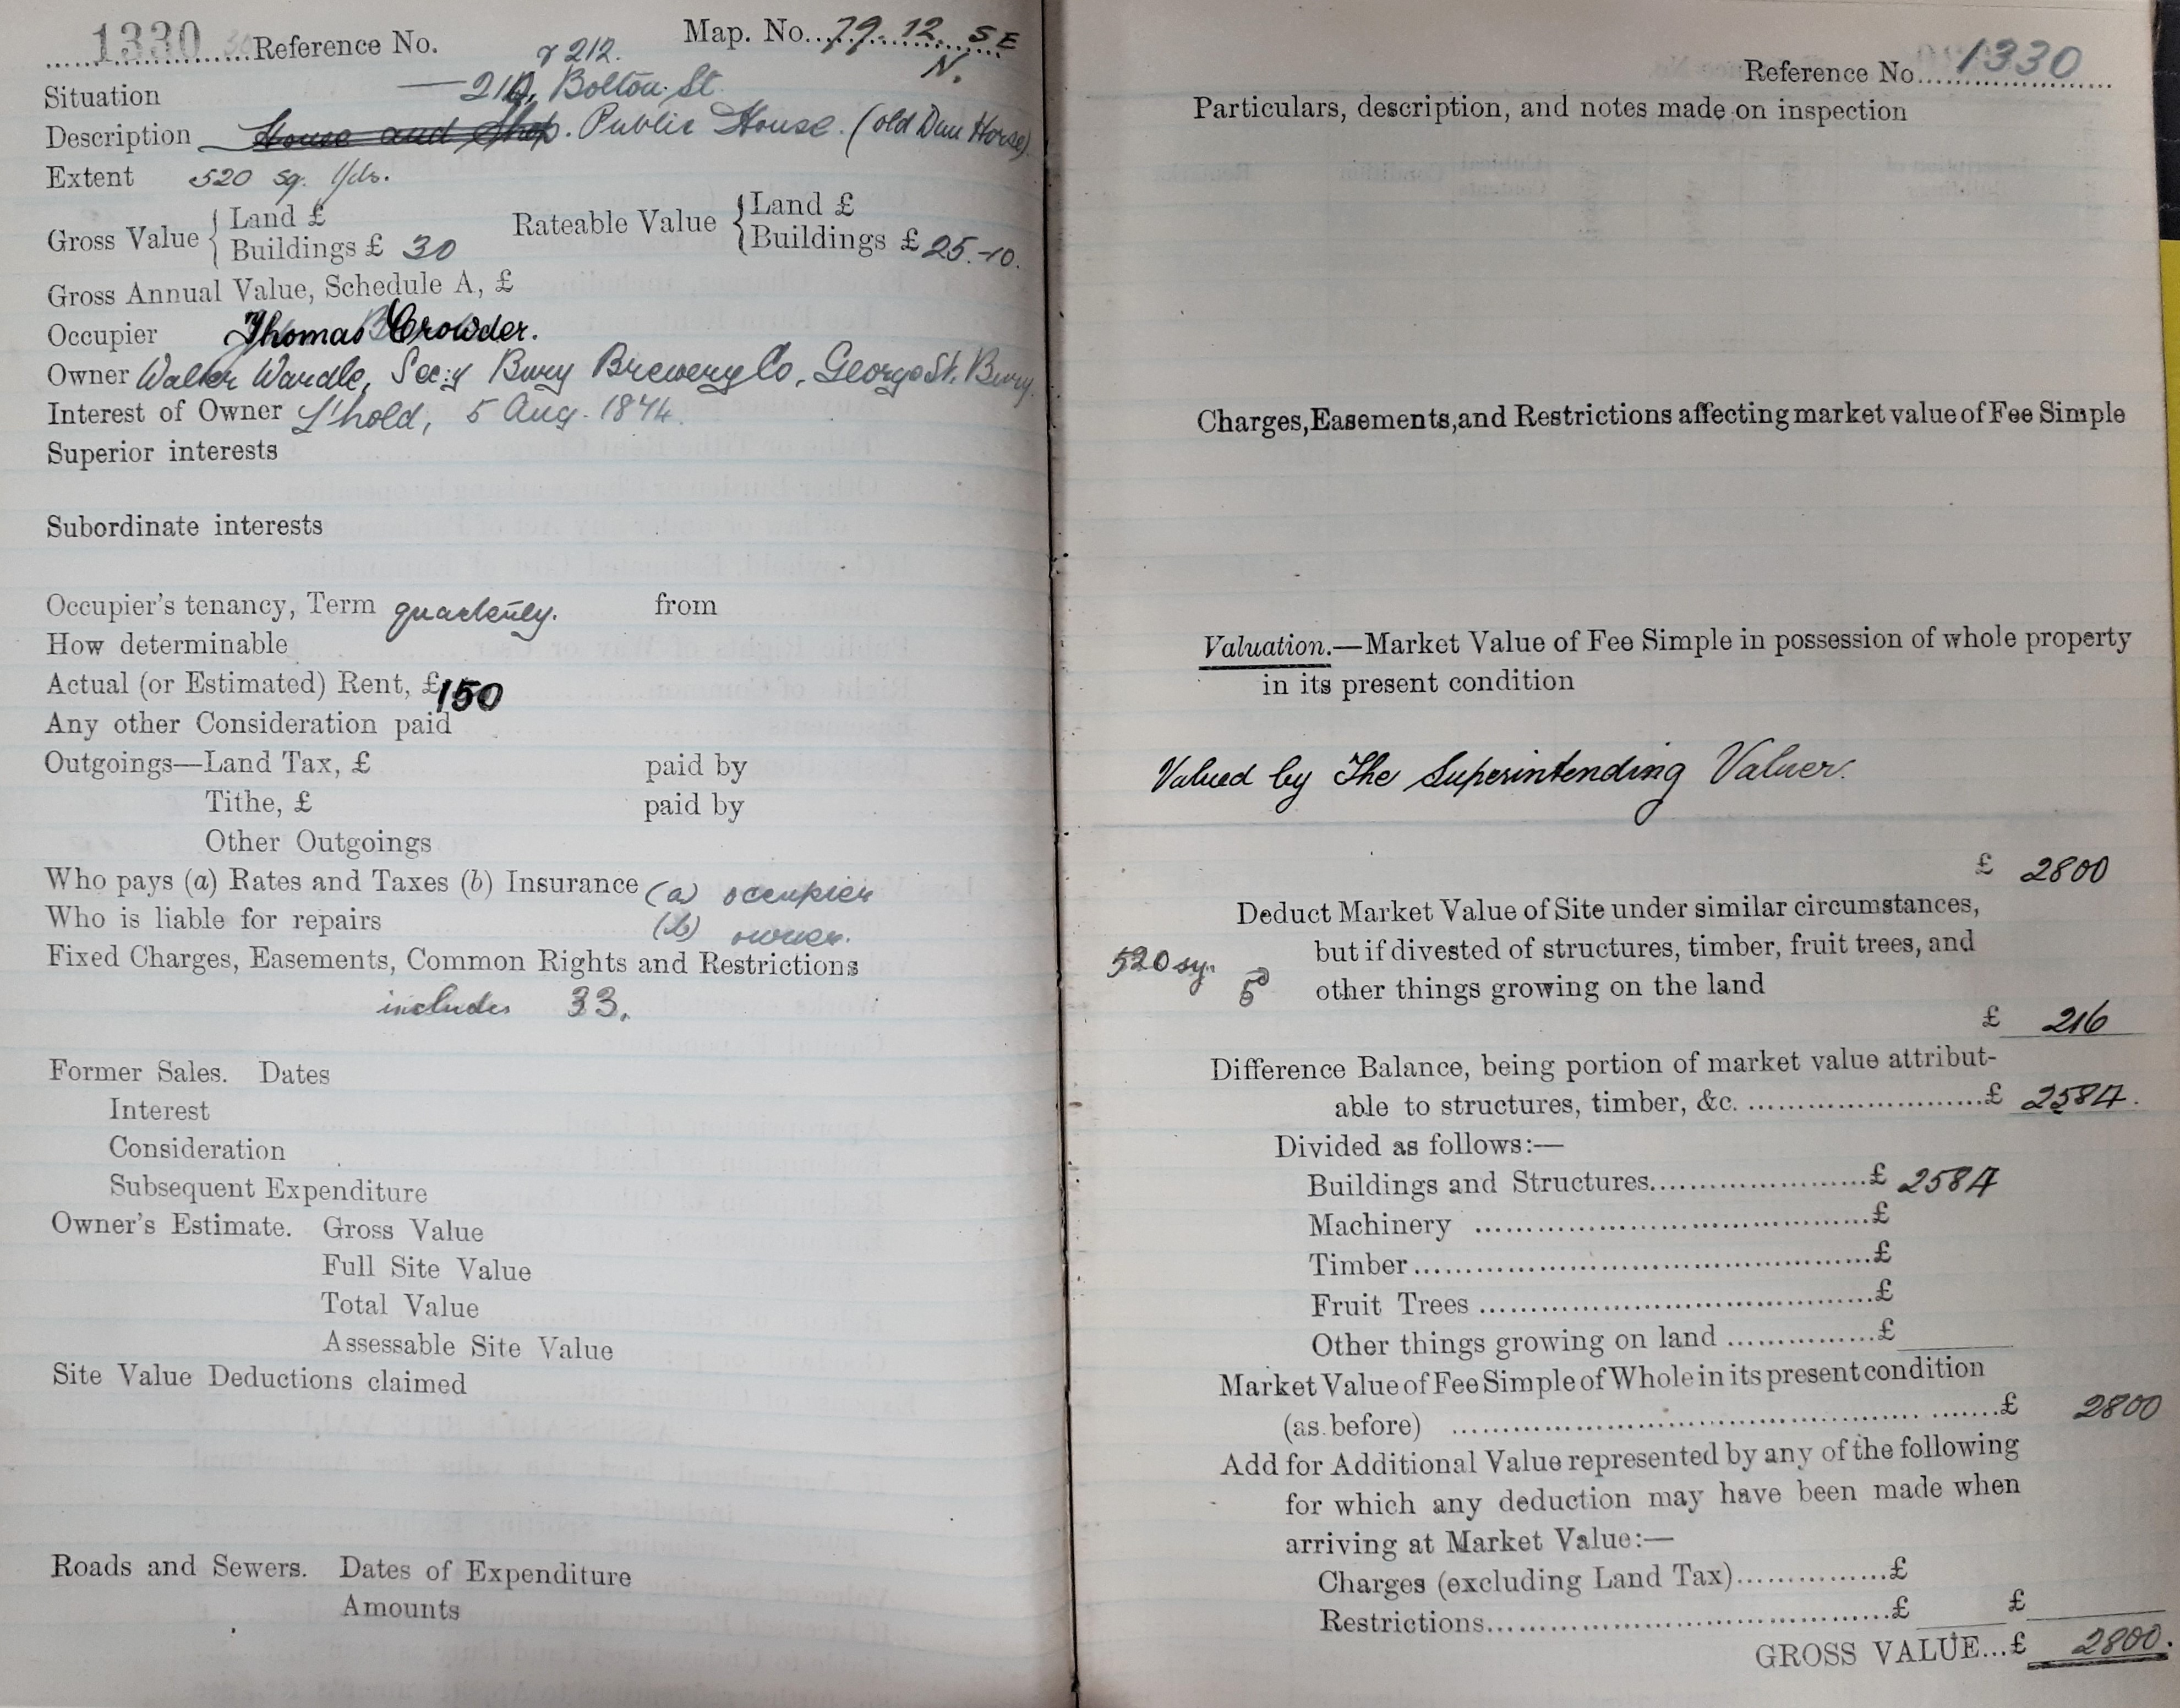 1330 Reference No. Map. No. 79. 12. SE
& 212. N.
Situation 210, Bolton St.
Description House and Shop. Public House. (old Dun Horse)
Extent 520 sq. Yds.
Gross Value { Land £ Rateable Value { Land £
Buildings £ 30 Buildings £ 25.-10.
Gross Annual Value, Schedule A, £
Occupier Thomas Crowder.
Owner Walter Wardle, Sec:y Bury Brewery Co, George St. Bury
Interest of Owner L'hold, 5 Aug. 1874.
Superior interests
Subordinate interests
Occupier's tenancy, Term quarterly. from
How determinable
Actual (or Estimated) Rent, £ 150
Any other Consideration paid
Outgoings—Land Tax, £ paid by
Tithe, £ paid by
Other Outgoings
Who pays (a) Rates and Taxes (b) Insurance (a) occupier
Who is liable for repairs (b) owner.
Fixed Charges, Easements, Common Rights and Restrictions
includes 33.
Former Sales. Dates
Interest
Consideration
Subsequent Expenditure
Owner's Estimate. Gross Value
Full Site Value
Total Value
Assessable Site Value
Site Value Deductions claimed
Roads and Sewers. Dates of Expenditure
Amounts
Reference No. 1330
Particulars, description, and notes made on inspection
Charges, Easements, and Restrictions affecting market value of Fee Simple
Valuation.—Market Value of Fee Simple in possession of whole property
in its present condition
Valued by The Superintending Valuer.
£ 2800
Deduct Market Value of Site under similar circumstances,
but if divested of structures, timber, fruit trees, and
520 sy. 5d other things growing on the land
£ 216
Difference Balance, being portion of market value attribut-
able to structures, timber, &c. £ 2584.
Divided as follows:—
Buildings and Structures £ 2584
Machinery £
Timber £
Fruit Trees £
Other things growing on land £
Market Value of Fee Simple of Whole in its present condition
(as before) £ 2800
Add for Additional Value represented by any of the following
for which any deduction may have been made when
arriving at Market Value:—
Charges (excluding Land Tax) £
Restrictions £ £
GROSS VALUE...£ 2800.